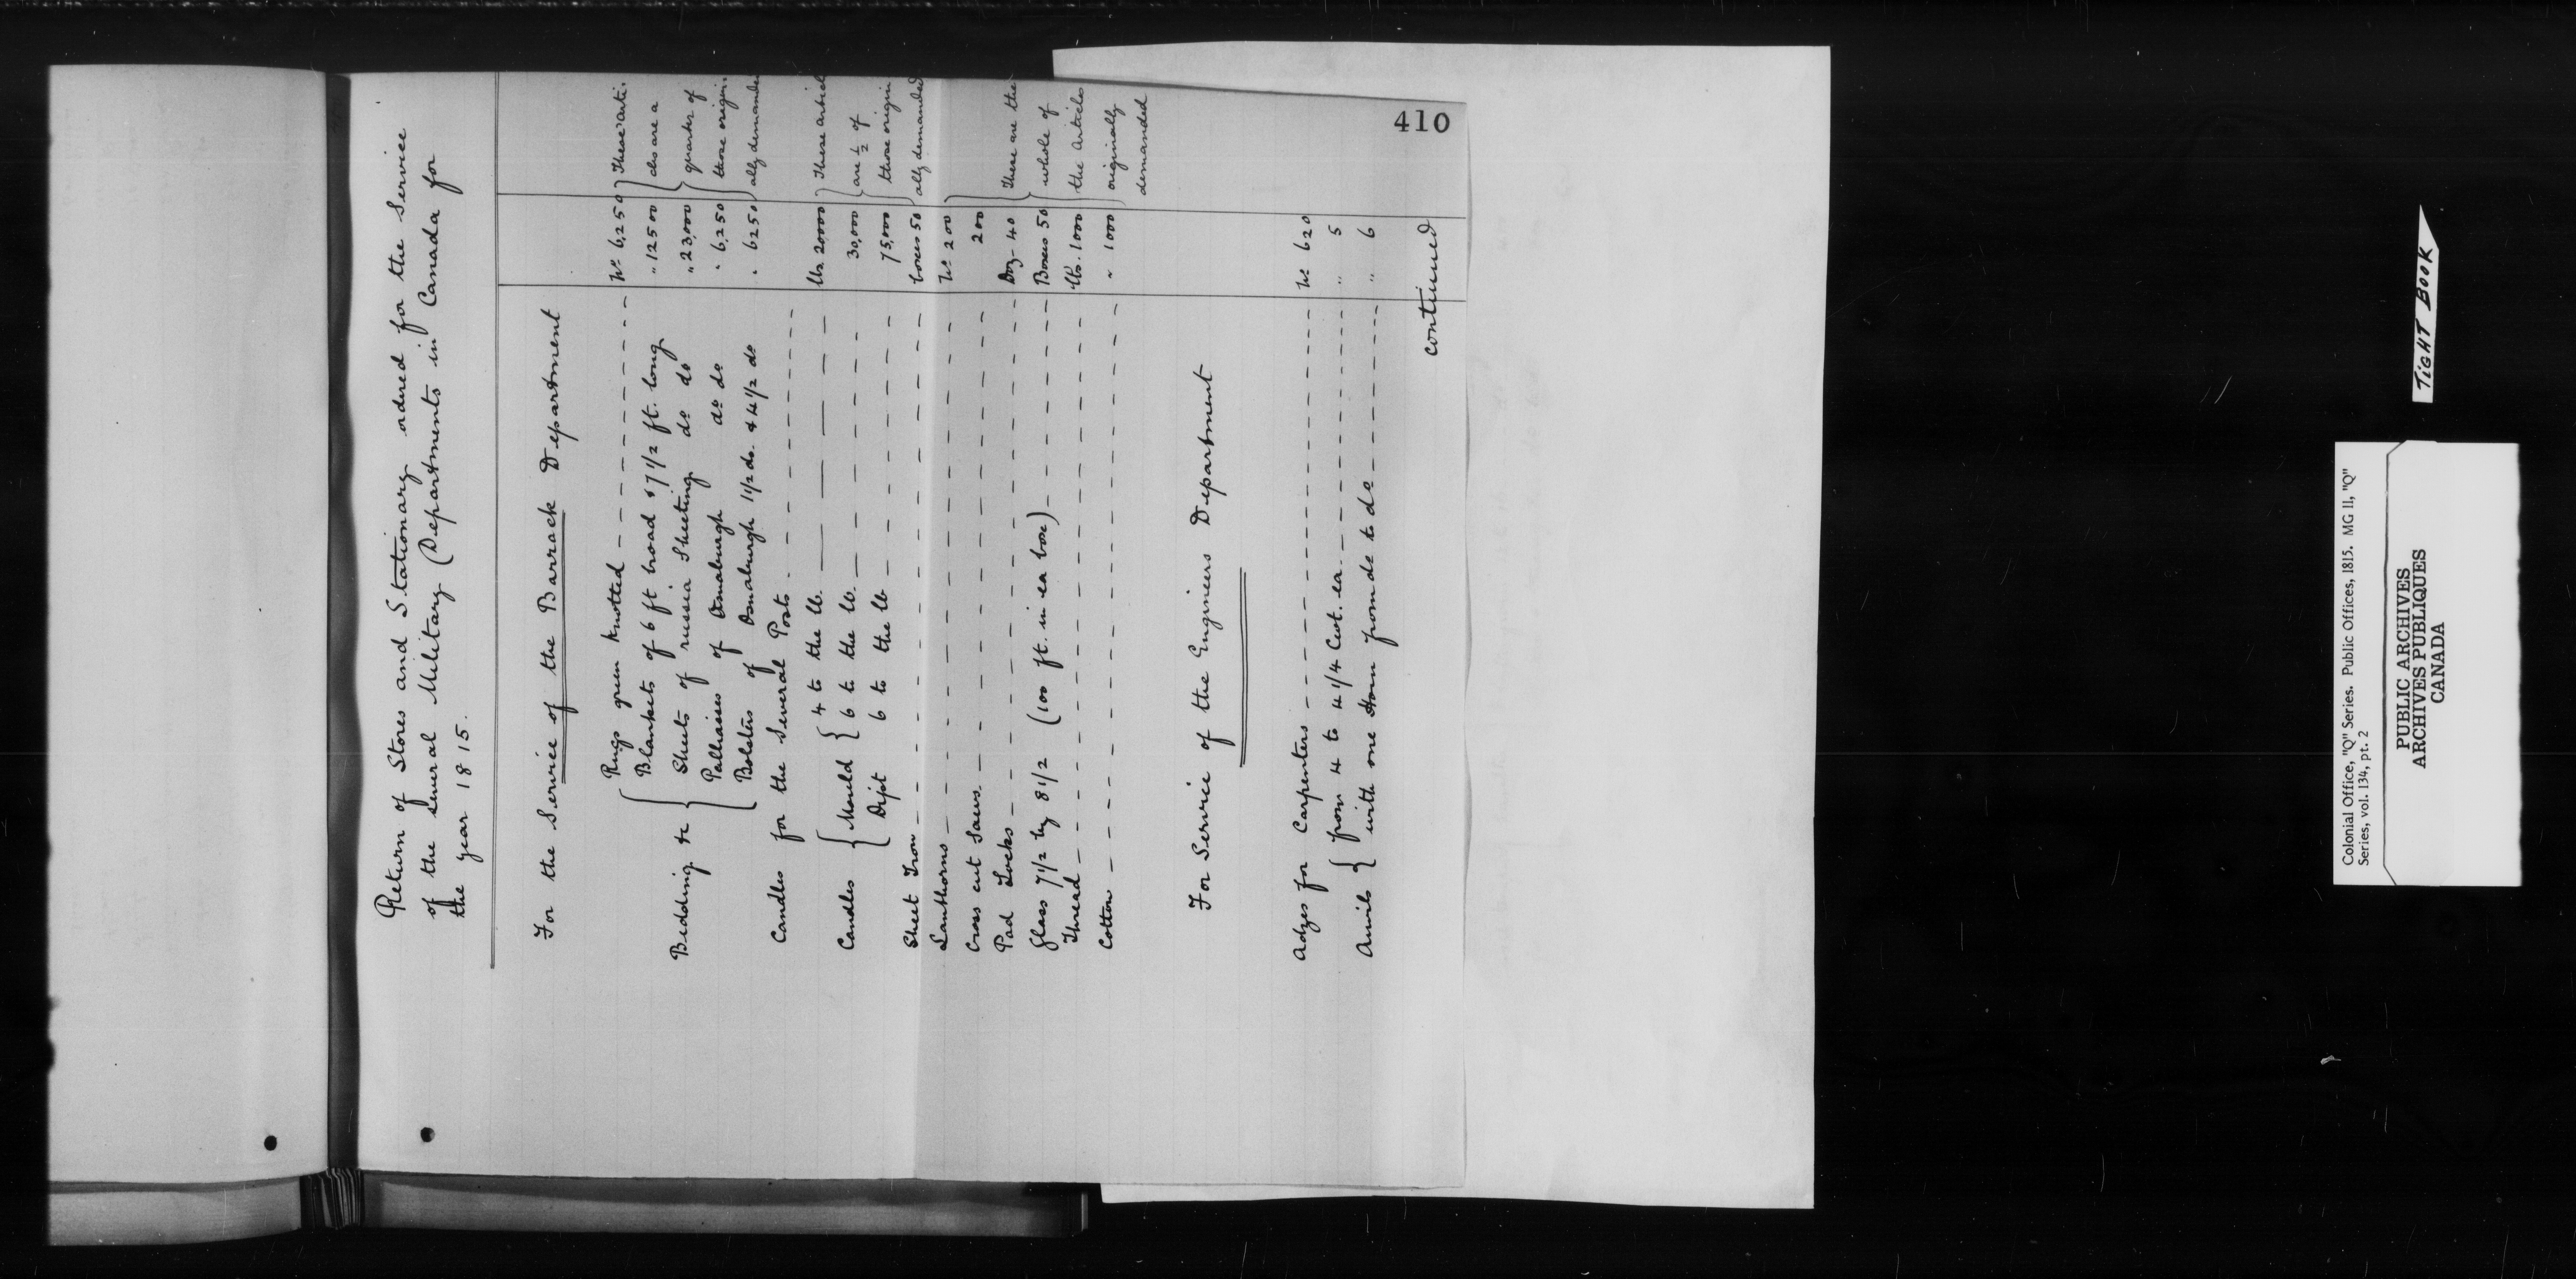 410
Return of Stores and Stationary ordred for the Service
of the several Military (Departments in Canada for
the year 1815.
For the Service of the Barrack Department
Bedding &c { Rugs green knotted Nº 6,250 } These arti-
Blankets of 6 ft broad & 7 1/2 ft. long " 12500 cles are a
Sheets of russia Sheeting dº do " 23,000 quarter of
Palliasses of Osnaburgh dº do " 6,250 those origin-
Bolsters of Osnaburgh 1 1/2 do. & 4 1/2 do " 6250 ally demanded
Candles for the Several Posts
Candles { Mould { 4 to the lb. lbs. 20000 } These articl
6 to the lb. 30,000 are 1/2 of
Dipt 6 to the lb 75,000 those origin
Sheet Iron boxes 50 ally demanded
Lanthorns Nº 200
Cross cut Saws 200
Pad Locks Doz- 40 These are the
Glass 7 1/2 by 8 1/2 (100 ft. in ea box) Boxes 50 whole of
Thread lbs. 1000 the Articles
Cotton " 1000 originally
demanded
For Service of the Engineers Department
Adzes for Carpenters Nº 620
Anvils { from 4 to 4 1/4 Cwt. ea. " 5
with one Horn from do to dº " 6
continued
TIGHT BOOK
Colonial Office, "Q" Series. Public Offices, 1815. MG 11, "Q"
Series, vol. 134, pt. 2
PUBLIC ARCHIVES
ARCHIVES PUBLIQUES
CANADA